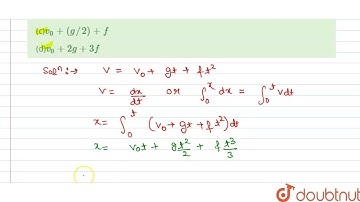 (c)v₀ + (g/2) + f
(d)v₀ + 2g + 3f
Solⁿ:→ v = v₀ + gt + ft²
v = dx/dt or ∫₀ˣ dx = ∫₀ᵗ vdt
x = ∫₀ᵗ (v₀ + gt + ft²)dt
x = v₀t + gt²/2 + f t³/3
doubtnut